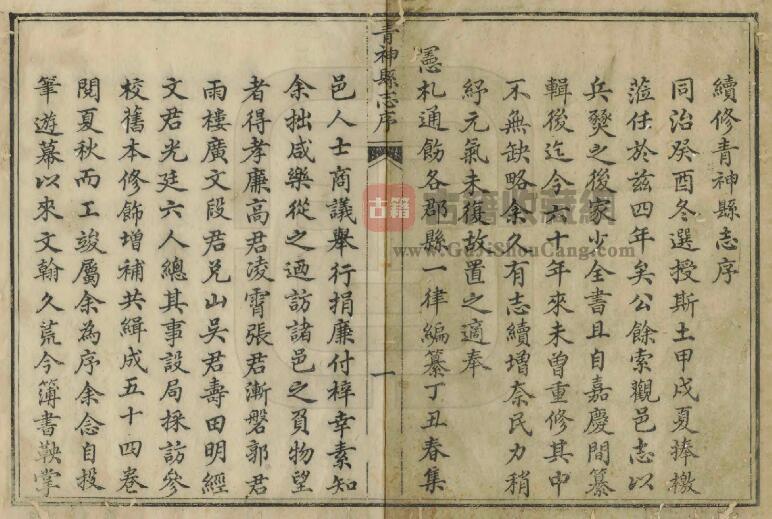 續修青神縣志序
同治癸酉冬選授斯土甲戌夏捧檄
蒞任於兹四年矣公餘索觀邑志以
兵燹之後家少全書且自嘉慶間纂
輯後迄今六十年來未曾重修其中
不無缺略余久有志續增奈民力稍
紓元氣未復故置之適奉
憲札通飭各郡縣一律編纂丁丑春集
青神縣志序
一
邑人士商議舉行捐廉付梓幸素知
余拙咸樂從之迺訪諸邑之負物望
者得孝廉高君凌霄張君漸磐郭君
雨樓廣文段君兑山吳君壽田明經
文君光廷六人總其事設局採訪參
校舊本修飾增補共緝成五十四卷
閱夏秋而工竣屬余為序余念自投
筆遊幕以來文翰久荒今簿書鞅掌
古籍
古籍收藏網
www.GuJiShouCang.com